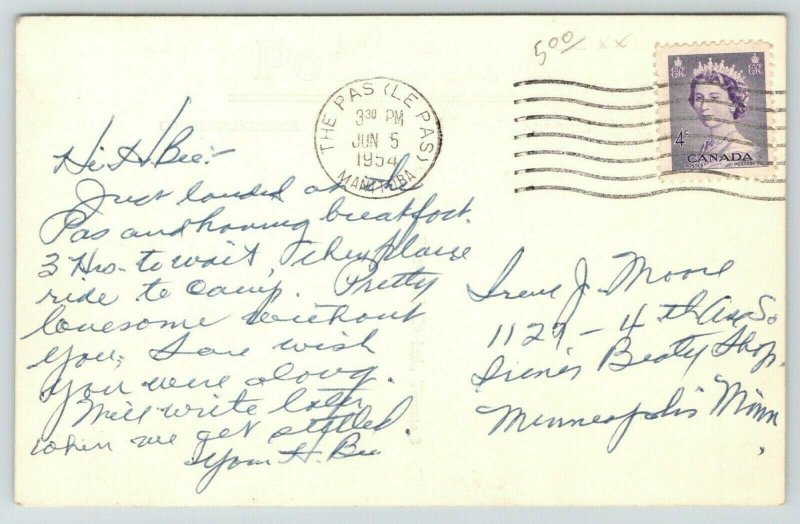 5.00/ xx
THE PAS (LE PAS)
3 30 PM
JUN 5
1954
MANITOBA
4c
CANADA
POSTES POSTAGE
CORRESPONDENCE
Hi H. Bee:-
Just landed at
Pas and having breakfast.
3 Hrs. to wait then plane
ride to camp. Pretty
lonesome without
you, Sure wish
you were along.
Will write later
when we get settled.
Your H. Bee
Irene J. Moore
1127 - 4th Ave So
Irene's Beaty Shop.
Minneapolis Minn.